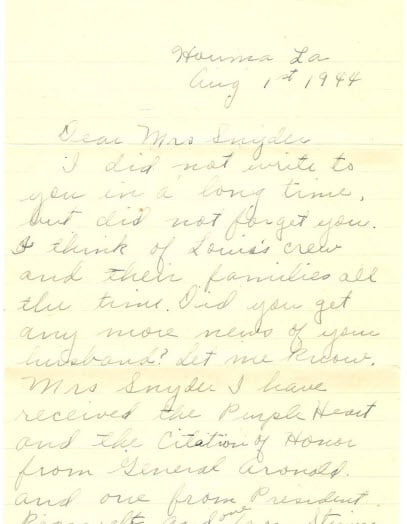 Houma La
Aug 1st 1944
Dear Mrs Snyder
I did not write to
you in a long time,
but did not forget you.
I think of Louis's crew
and their families all
the time. Did you get
any more news of your
husband? Let me know.
Mrs Snyder I have
received the Purple Heart
and the Citation of Honor
from General Arnold.
and one from President
Roosevelt and one from